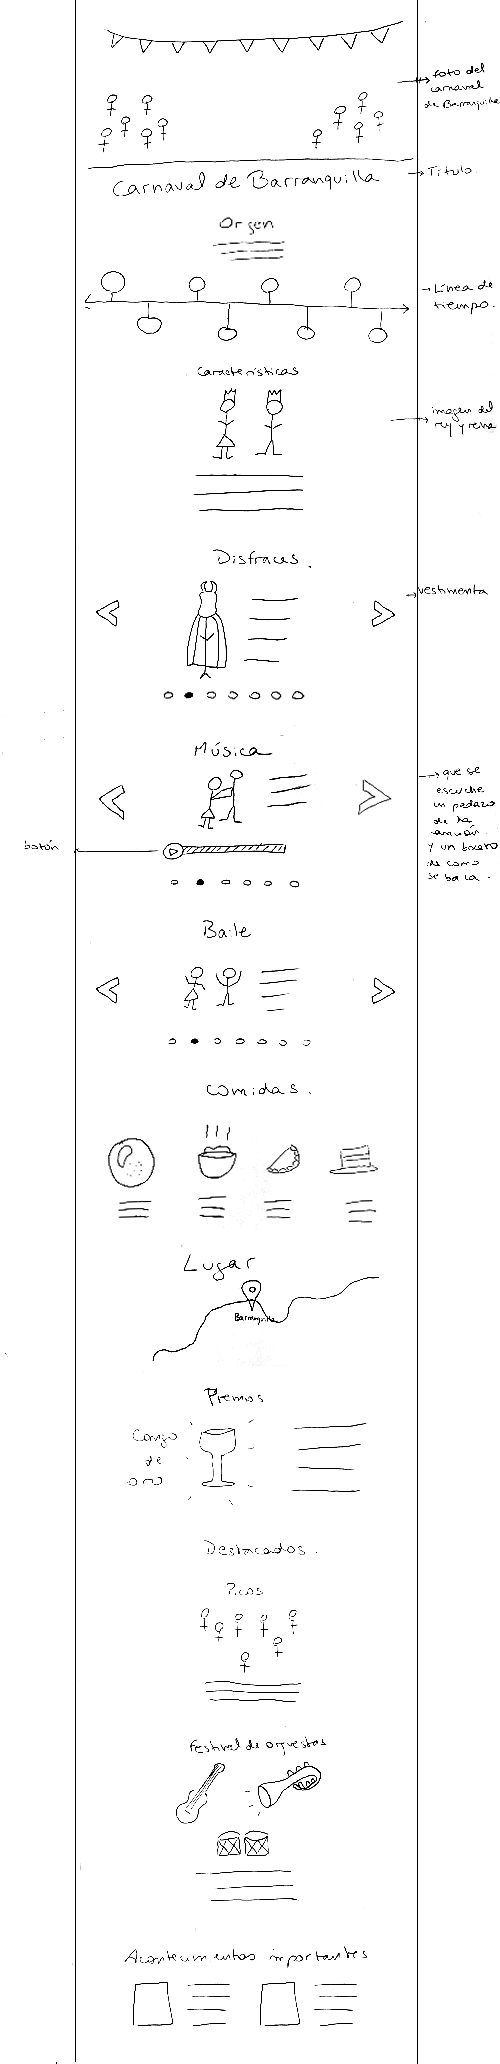 foto del
carnaval
de Barranquilla
Carnaval de Barranquilla
Titulo
Origen
Línea de
tiempo.
Características
imagen del
rey y reina
Disfraces.
vestimenta
Música
que se
escuche
un pedazo
de la
canción
y un boceto
de como
se baila.
botón
Baile
Comidas.
Lugar
Barranquilla
Premios
Congo
de
oro
Destacados.
Picos
Festival de orquestas
Acontecimientos importantes